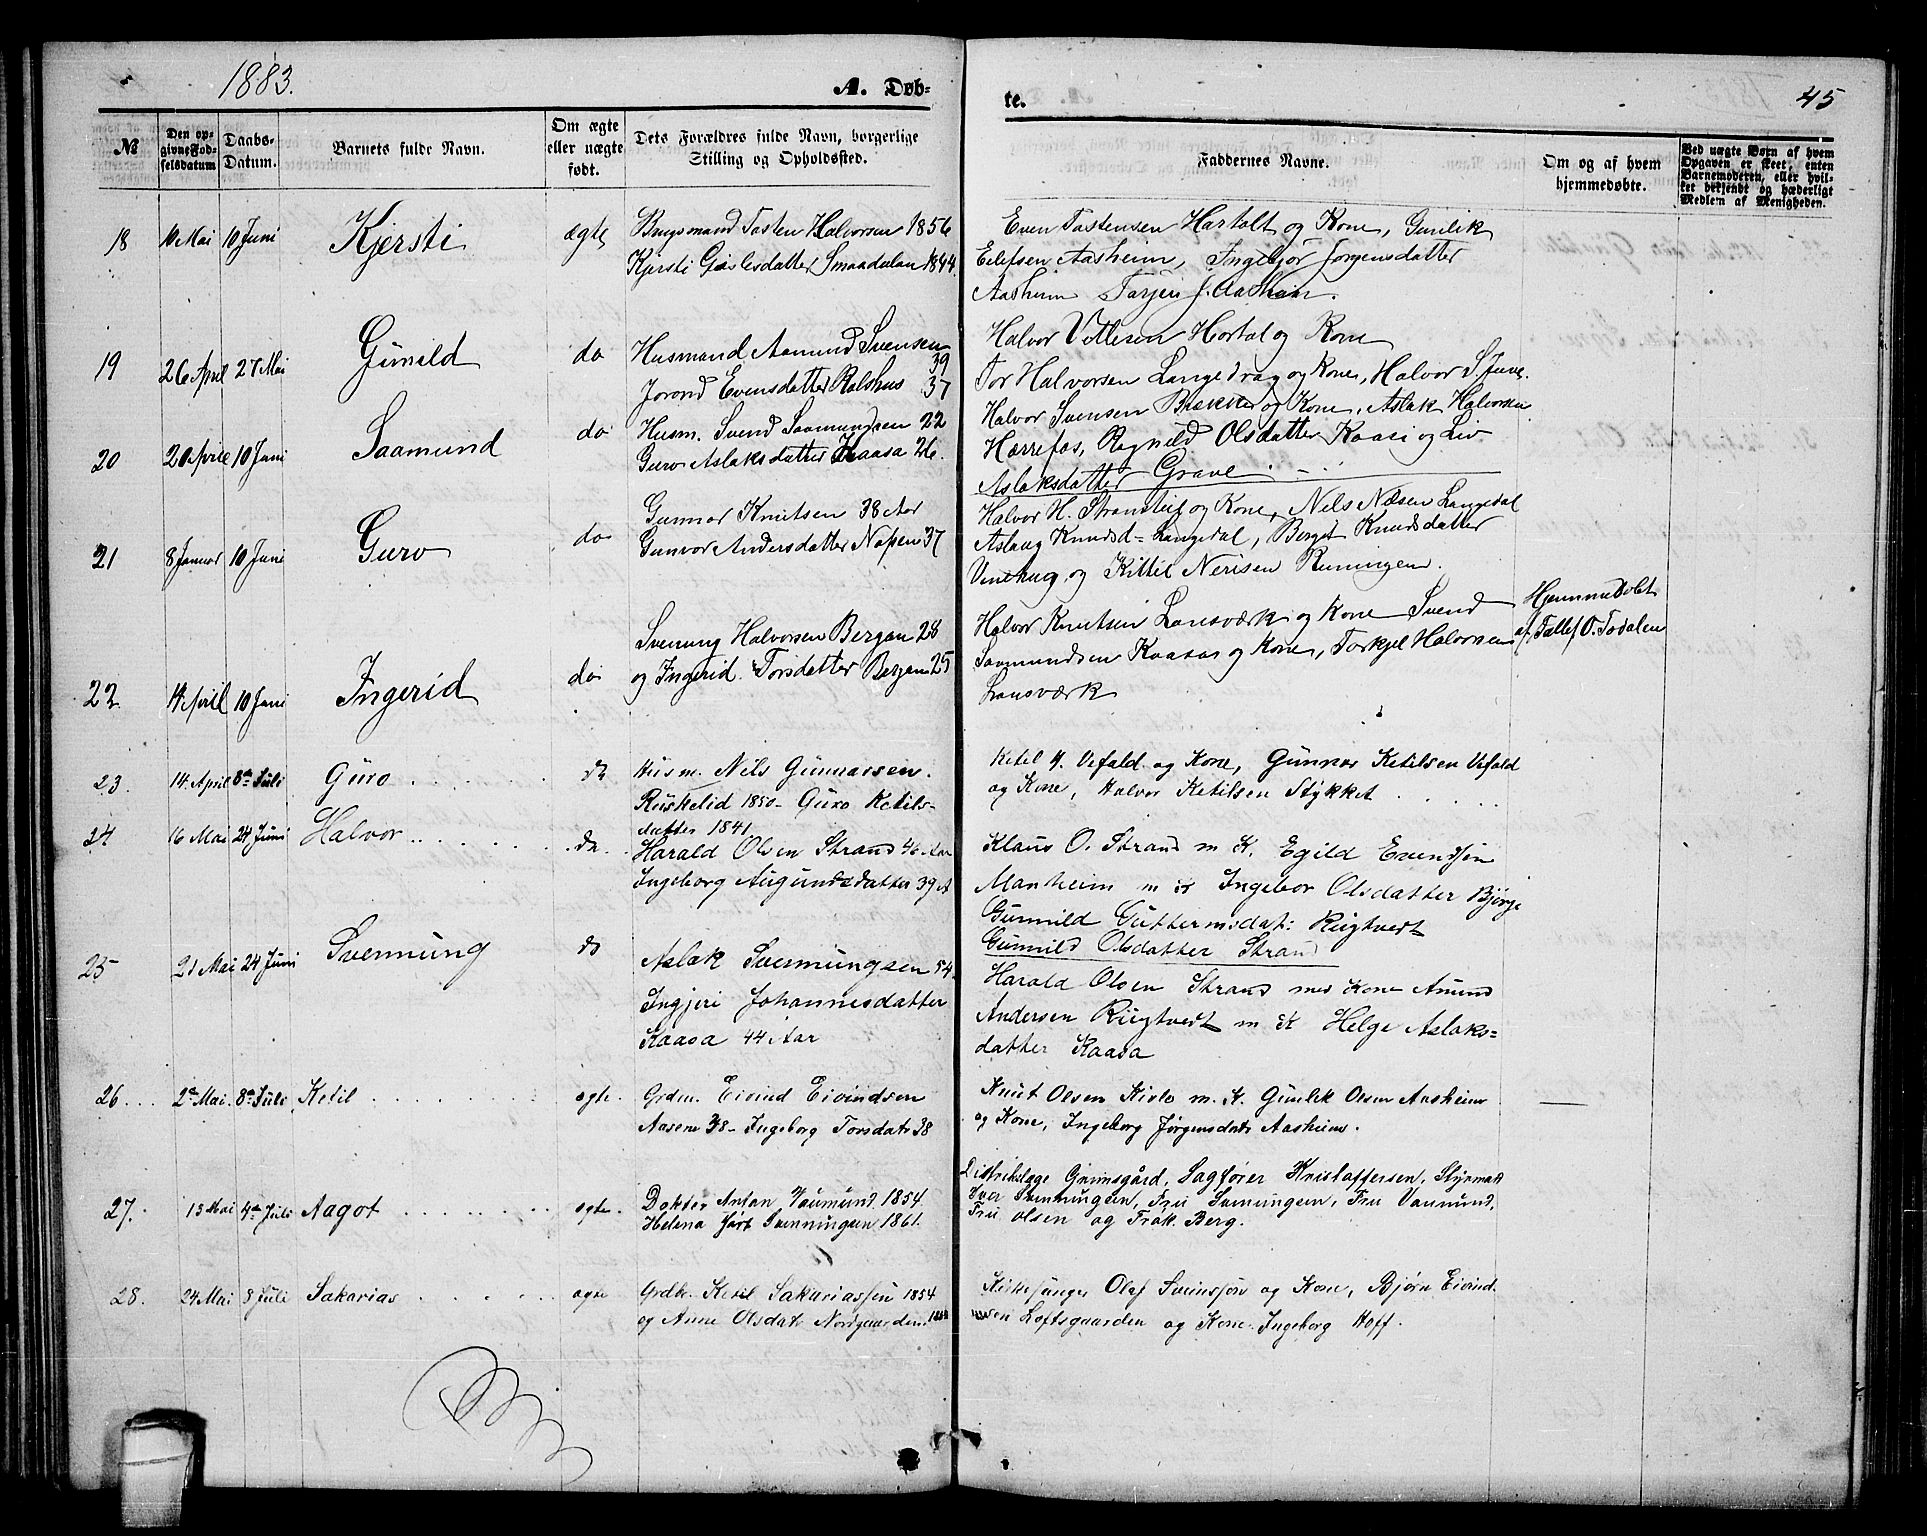 1883.
A. Døb-
te.
45
№
Den op-
givne Fød-
selsdatum
Daabs-
Datum.
Barnets fulde Navn.
Om ægte
eller uægte
født.
Dets Forældres fulde Navn, borgerlige
Stilling og Opholdssted.
Faddernes Navne.
Om og af hvem
hjemmedøbte.
Ved uægte Børn af hvem
Opgaven er skeet, enten
Barnemoderen, eller hvil-
ket bekjendt og hæderligt
Medlem af Menigheden.
18 10 Mai 10 Juni Kjersti ægte
Brugsmand Tosten Halvorsen 1856
Kjersti Gislesdatter Smaadalen 1844.
Even Tostensen Hartolt og Kone, Gunlik
Eilefsen Aasheim, Ingebjør Jørgensdatter
Aasheim Tarjen J. Aasheim.
19 26 April 27 Mai Gunild do
Husmand Aamund Svensen 39
Jorond Evensdatter Ralshus 37
Halvor Vetlesen Hortal og Kone
Tor Halvorsen Langedrag og Kone, Halvor S. Juve.
20 20 April 10 Juni Saamund do
Husm. Svend Saamundsen 22
Guro Aslaksdatter Kaasa 26.
Halvor Svensen Bække og Kone, Aslak Halvorsen
Hærrefos, Ragnild Olsdatter Kaasi og Liv
Aslaksdatter Grave
21 8 Januar 10 Juni Guro do
Gunnar Knutsen 38 Aar
Gunvor Andersdatter Napen 37
Halvor H. Strandtuf og Kone, Nils Nilsen Langedal
Aslaug Knudsd= Langedal, Berget Knudsdatter
Vinehug, og Kittil Nerisen Runingen.
22 14 April 10 Juni Ingerid do
Svenung Halvorsen Bergan 28
og Ingerid Torsdatter Bergan 25
Halvor Knutsen Lonsværk og Kone Svend
Saamundsen Kaasa og Kone, Torkjel Halvorsen
Lonsværk
Hjemmedøbt
af Tallef O. Todalen
23. 14 April 8de Juli Guro do
Husm. Nils Gunnarsen.
Ruskelid 1850- Guro Ketils-
datter 1841
Ketil H. Vefald og Kone, Gunnar Ketilsen Vefald
og Kone, Halvor Ketilsen Stykket
24 16 Mai 24 Juni Halvor do.
Harald Olsen Strand 46 Aar
Ingeborg Augundsdatter 39 A
Klaus O. Strand m K. Egild Evendsen
Manheim m K Ingebor Olsdatter Bjørge
Gunnild Guttermsdat: Rugtvedt
Gunnild Olsdatter Strand
25 21 Mai 24 Juni Svennung do
Aslak Svennungsen 54.
Ingjeri Johannesdatter
Kaasa 44 Aar
Harald Olsen Strand med Kone Amund
Andersen Rugtvedt m K Helge Aslaks-
datter Kaasa
26. 2de Mai. 8de Juli Ketil ægte.
Grdm. Eivind Eivindsen
Aasene 38- Ingeborg Torsdatr 38
Knut Olsen Kivle m. K. Gunlek Olsen Aasheim
og Kone, Ingeborg Jørgensdatr Aasheim.
27. 13 Mai 4de Juli Aagot ægte.
Doktor Anton Vaumund 1854.
Helena Svenningsen 1861.
Distriktslæge Grimsgård, Sagfører Kristoffersen, Styrmand
Iver Svenningsen, Fru Svenningsen, Fru Vaumund,
Fru Olsen og Frøk. Berg.
28. 24 Mai 8 Juli Sakarias ægte
Grdbr. Ketil Sakariassen 1854
og Anne Olsdatr Nordgaarden
Kirkesanger Olaf Sveinsjøn og Kone, Bjørn Eivind-
sen Loftsgaarden og Kone. Ingeborg Hoff.